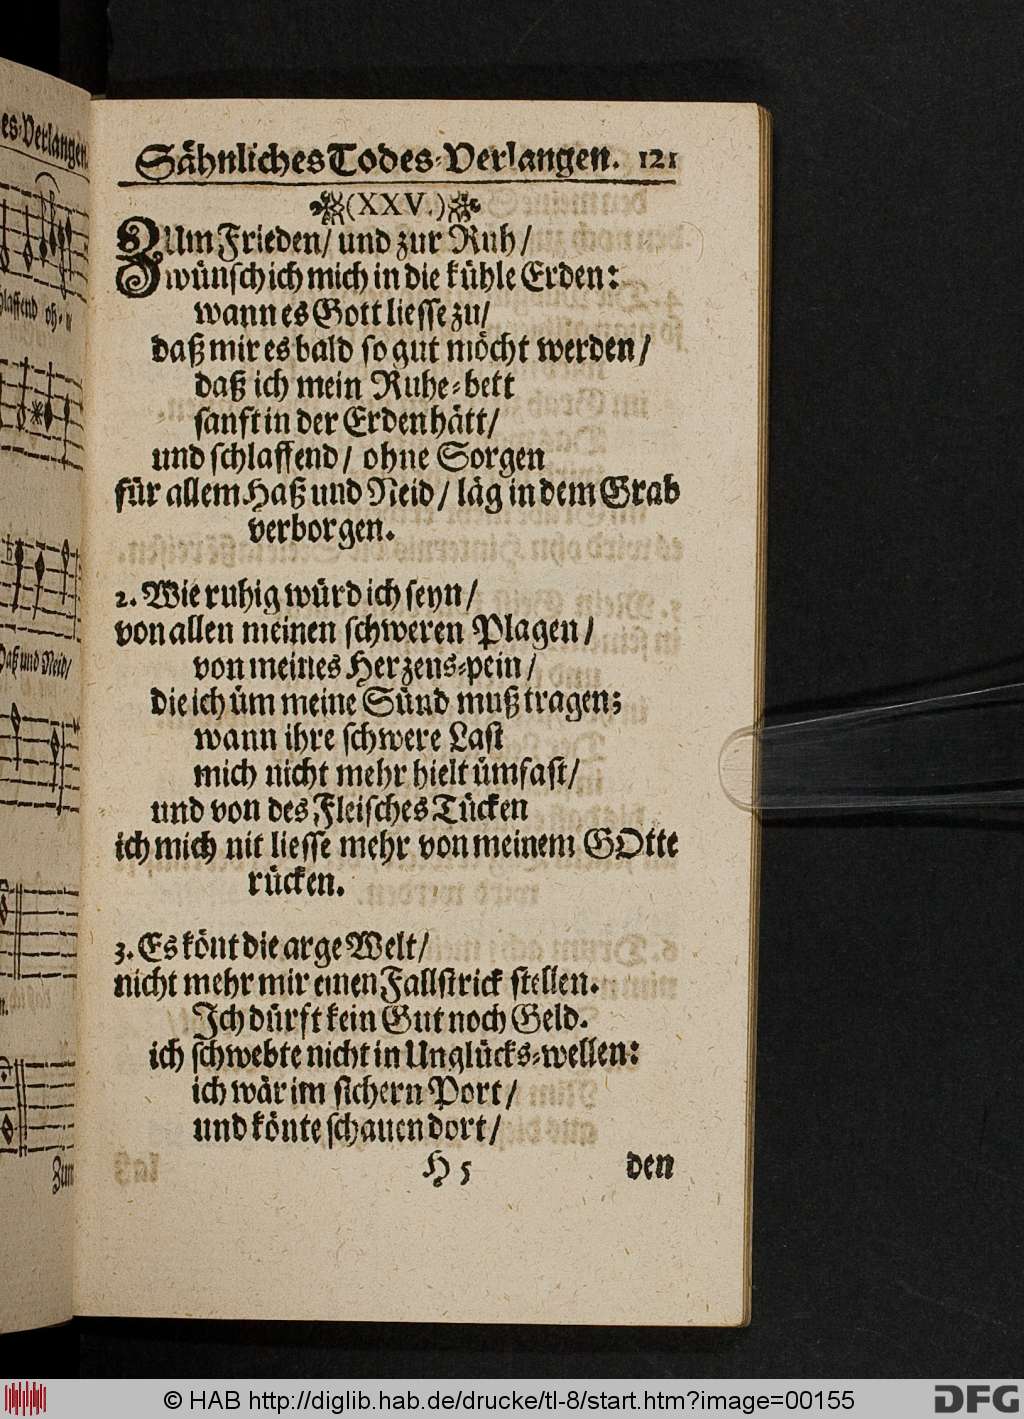 es-Verlangen.
Sähnliches Todes-Verlangen. 121
(XXV.)
ZUm Frieden/ und zur Ruh/
wünsch ich mich in die kühle Erden:
wann es Gott liesse zu/
daß mir es bald so gut möcht werden/
daß ich mein Ruhe-bett
sanft in der Erden hätt/
und schlaffend/ ohne Sorgen
für allem Haß und Neid/ läg in dem Grab
verborgen.
2. Wie ruhig würd ich seyn/
von allen meinen schweren Plagen/
von meines Herzens-pein/
die ich üm meine Sünd muß tragen;
wann ihre schwere Last
mich nicht mehr hielt ümfast/
und von des Fleisches Tücken
ich mich nit liesse mehr von meinem GOtte
rücken.
3. Es könt die arge Welt/
nicht mehr mir einen Fallstrick stellen.
Ich dürft kein Gut noch Geld.
ich schwebte nicht in Unglücks-wellen:
ich wär im sichern Port/
und könte schauen dort/
H 5 den
schlaffend oh-
Haß und Neid/
n.
Zum
© HAB http://diglib.hab.de/drucke/tl-8/start.htm?image=00155
DFG